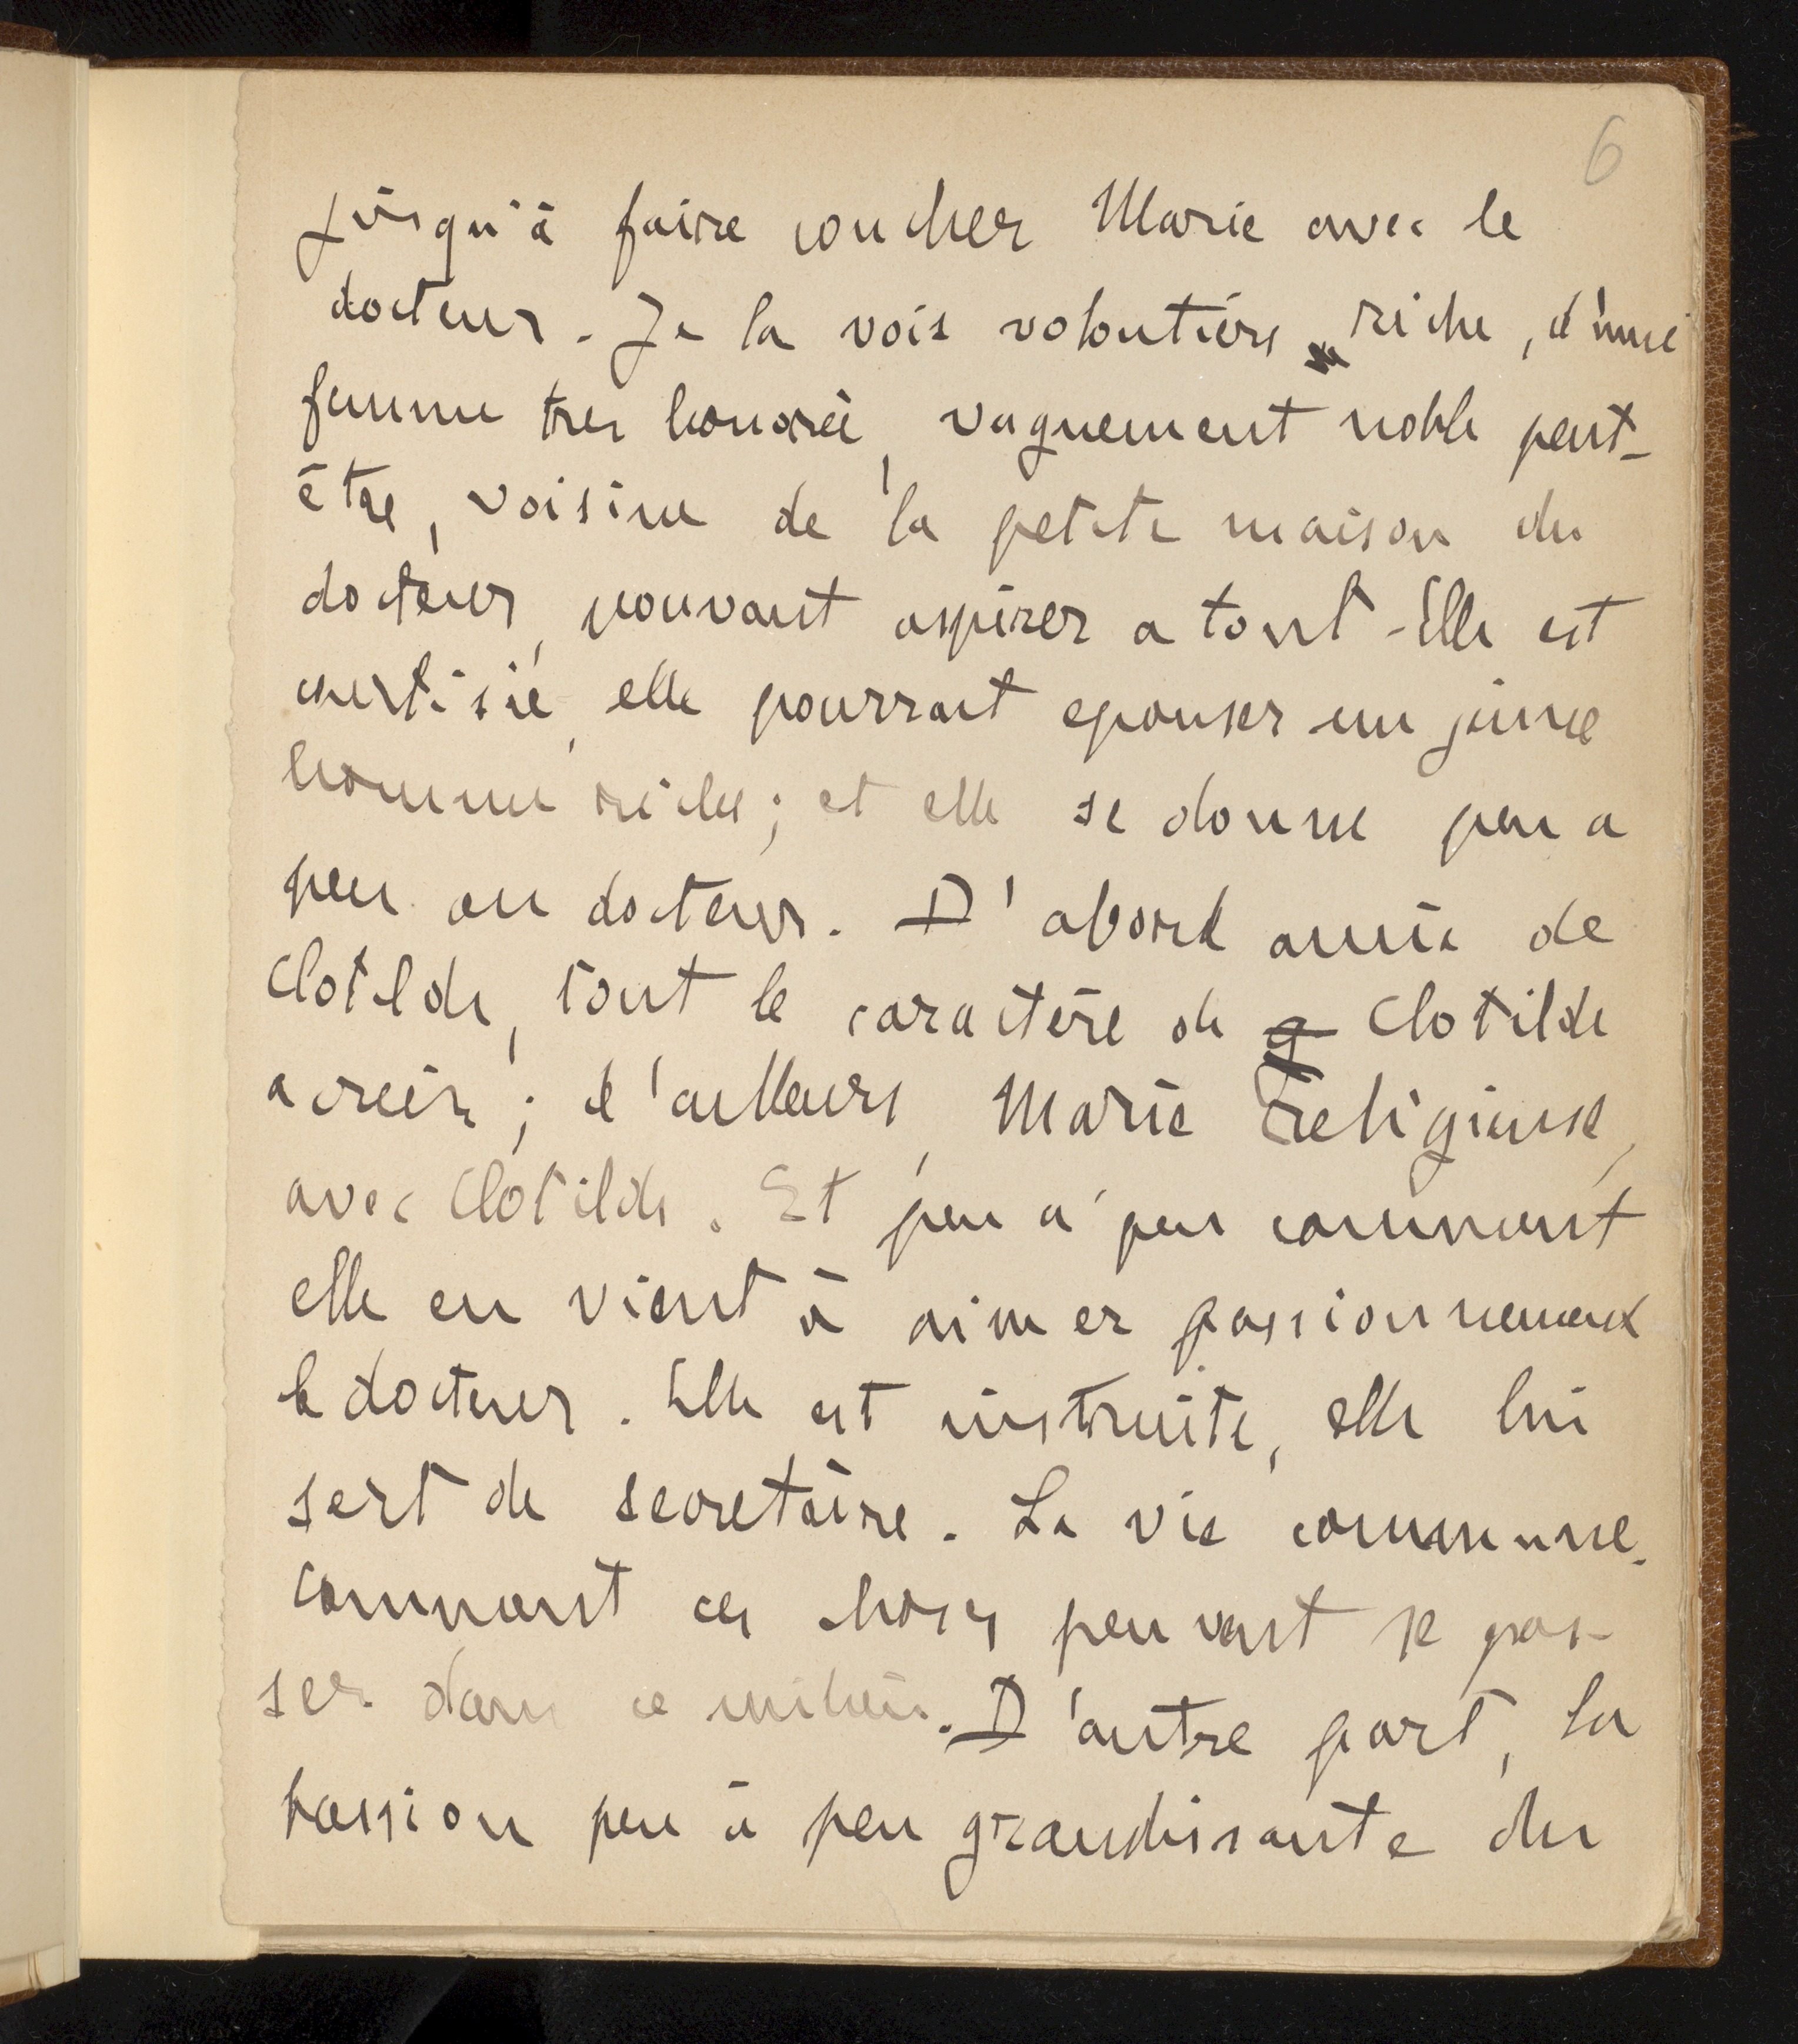 6
jusqu'à faire coucher Marie avec le
docteur. Je la vois volontiers riche, d'une
femme très honorée, vaguement noble peut-
être, voisine de la petite maison du
docteur, pouvant aspirer a tout. Elle est
courtisée, elle pourrait epouser un jeune
homme riche; et elle se donne peu a
peu au docteur. D'abord amie de
Clotilde, tout le caractère de Clotilde
a créer; d'ailleurs, Marie religieuse,
avec Clotilde. Et peu a peu comment
elle en vient à aimer passionnement
le docteur. Elle est instruite, elle lui
sert de secretaire. La vie commune.
comment ces choses peuvent se pas-
ser dans ce milieu. D'autre part, la
passion peu à peu grandissante du